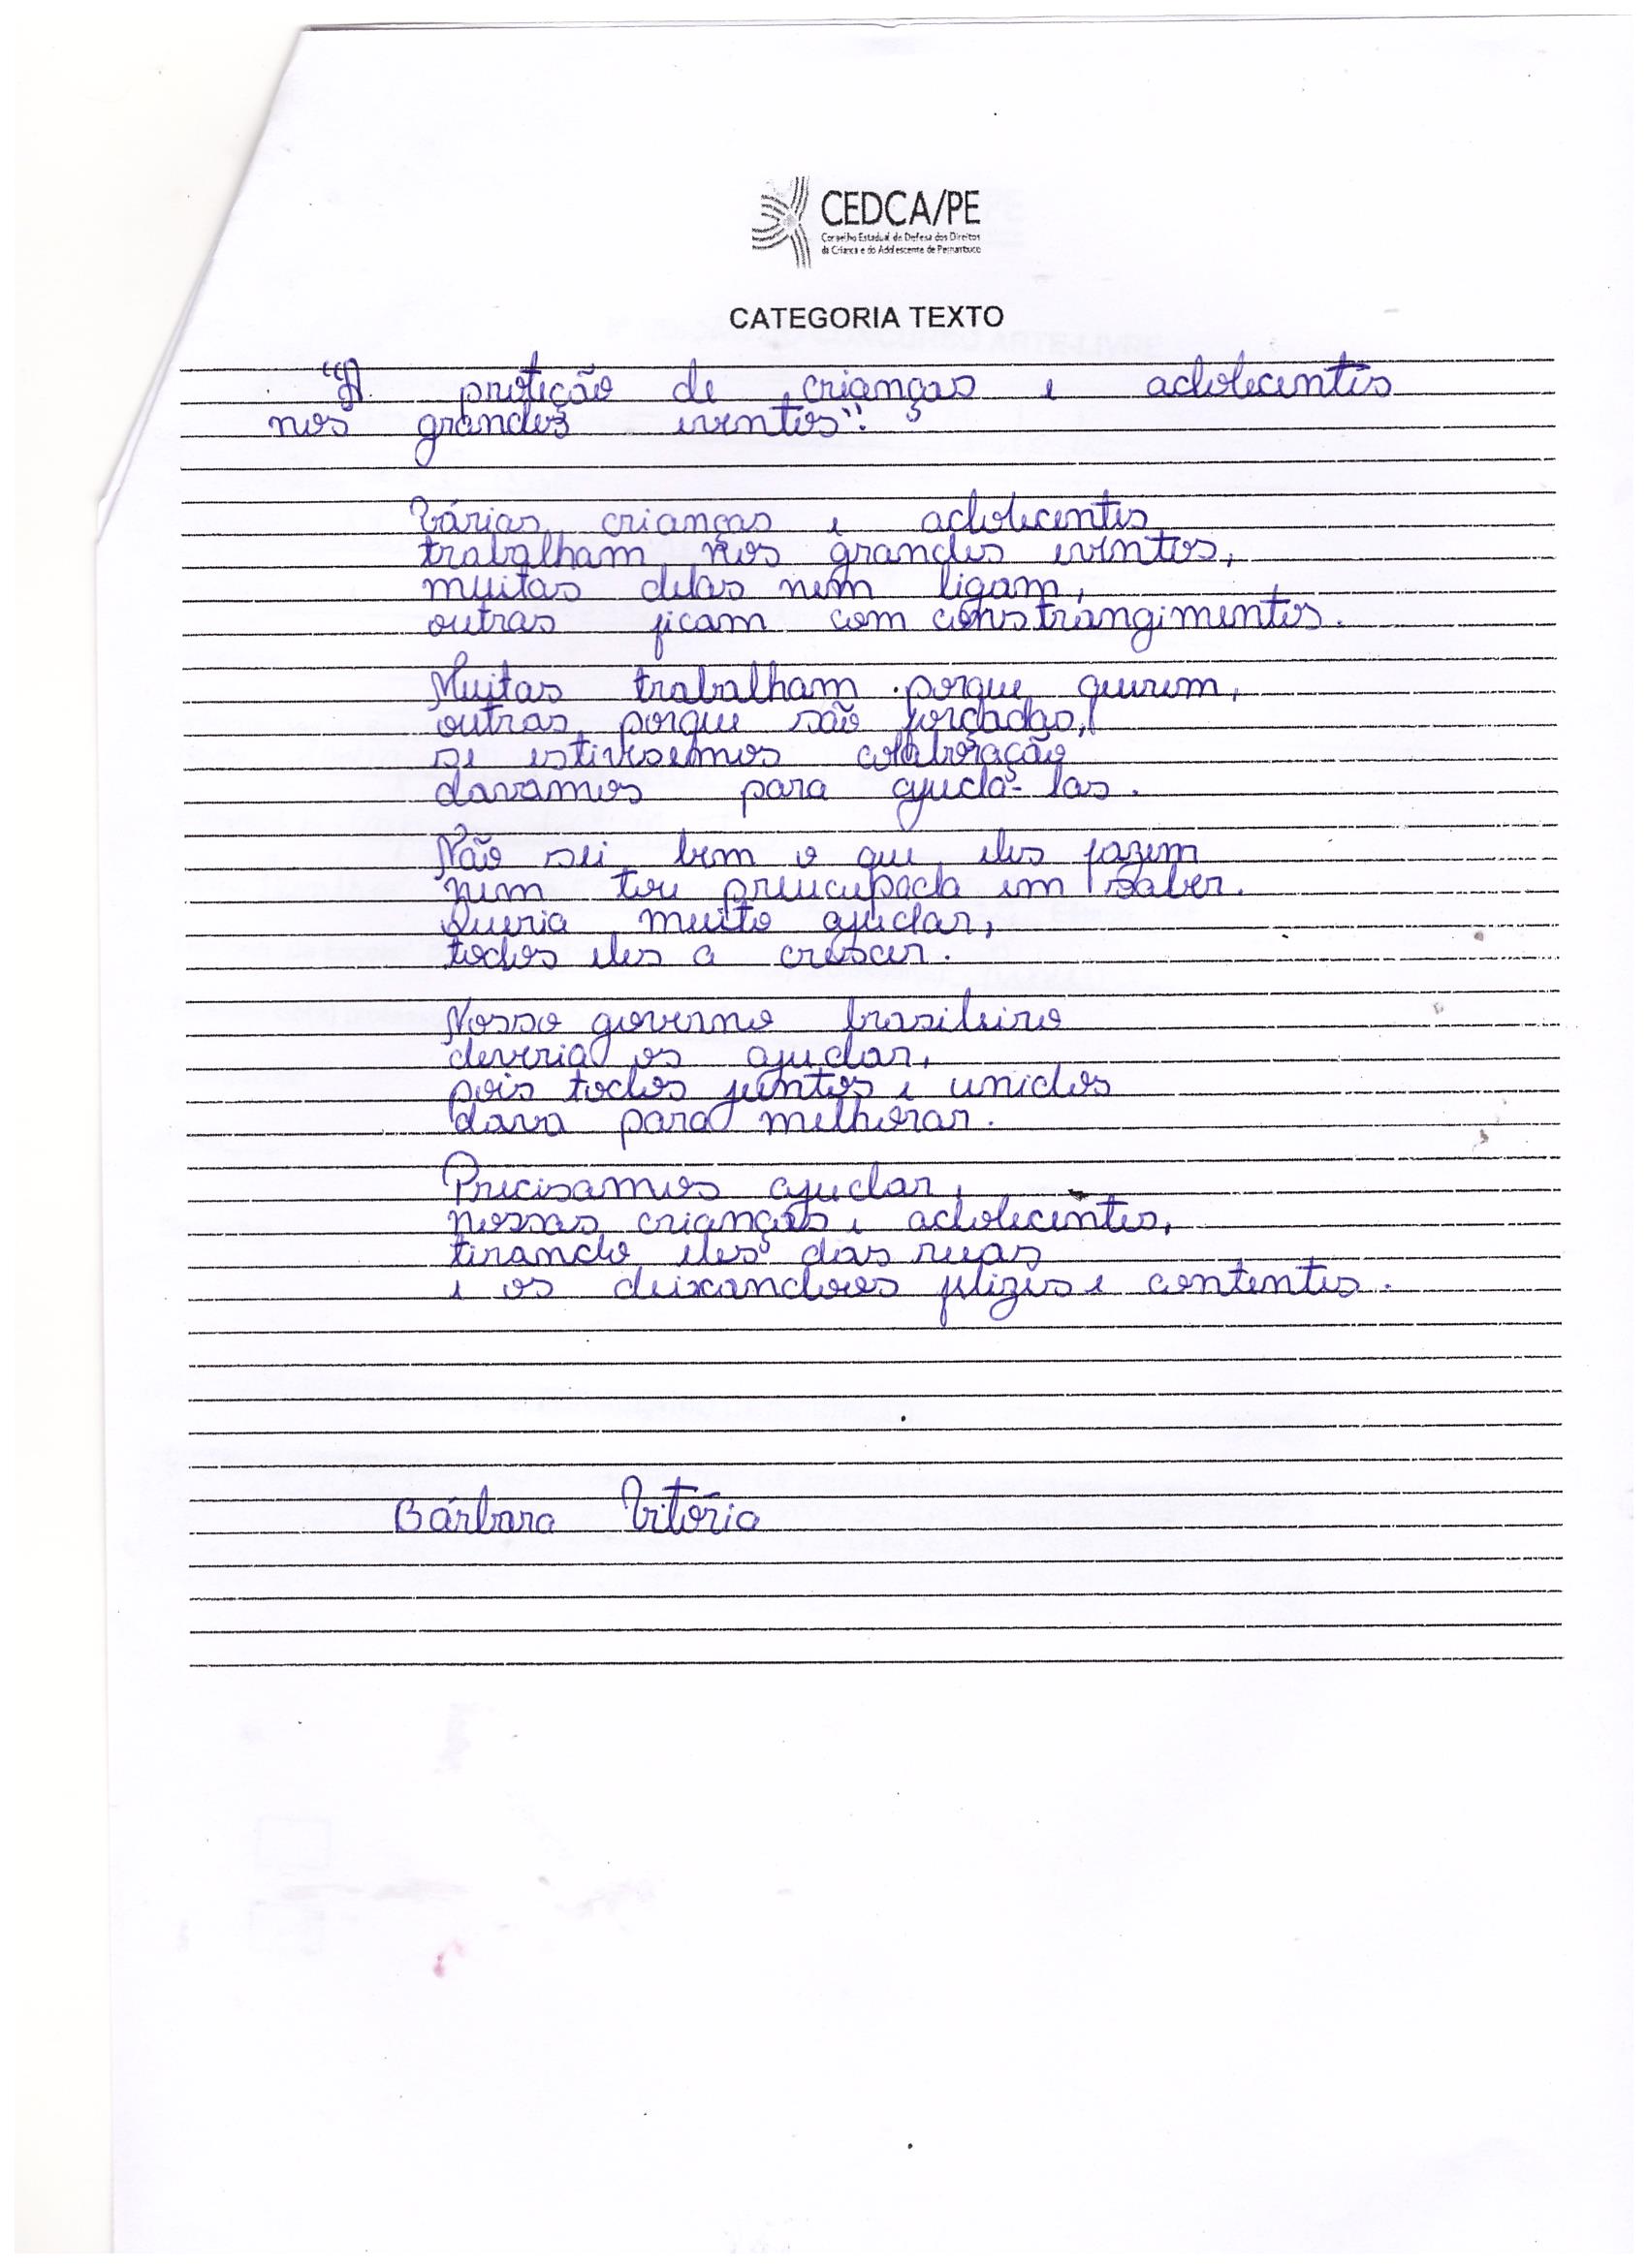 CEDCA/PE
Conselho Estadual de Defesa dos Direitos
da Criança e do Adolescente de Pernambuco
CATEGORIA TEXTO
"A proteção de crianças e adolecentes
nos grandes eventos".
Várias crianças e adolecentes
trabalham nos grandes eventos,
muitas delas nem ligam,
outras ficam com constrangimentos.
Muitas trabalham porque querem,
outras porque são forçadas,
se estivesemos colaboração
davamos para ajudá-las.
Não sei bem o que eles fazem
nem tou preucupada em saber.
Queria muito ajudar,
todos eles a crescer.
Nosso governo brasileiro
deveria os ajudar,
pois todos juntos e unidos
dava para melhorar.
Precisamos ajudar,
nossas crianças e adolecentes,
tirando eles das ruas
e os deixandoos felizes e contentes.
Bárbara Vitória